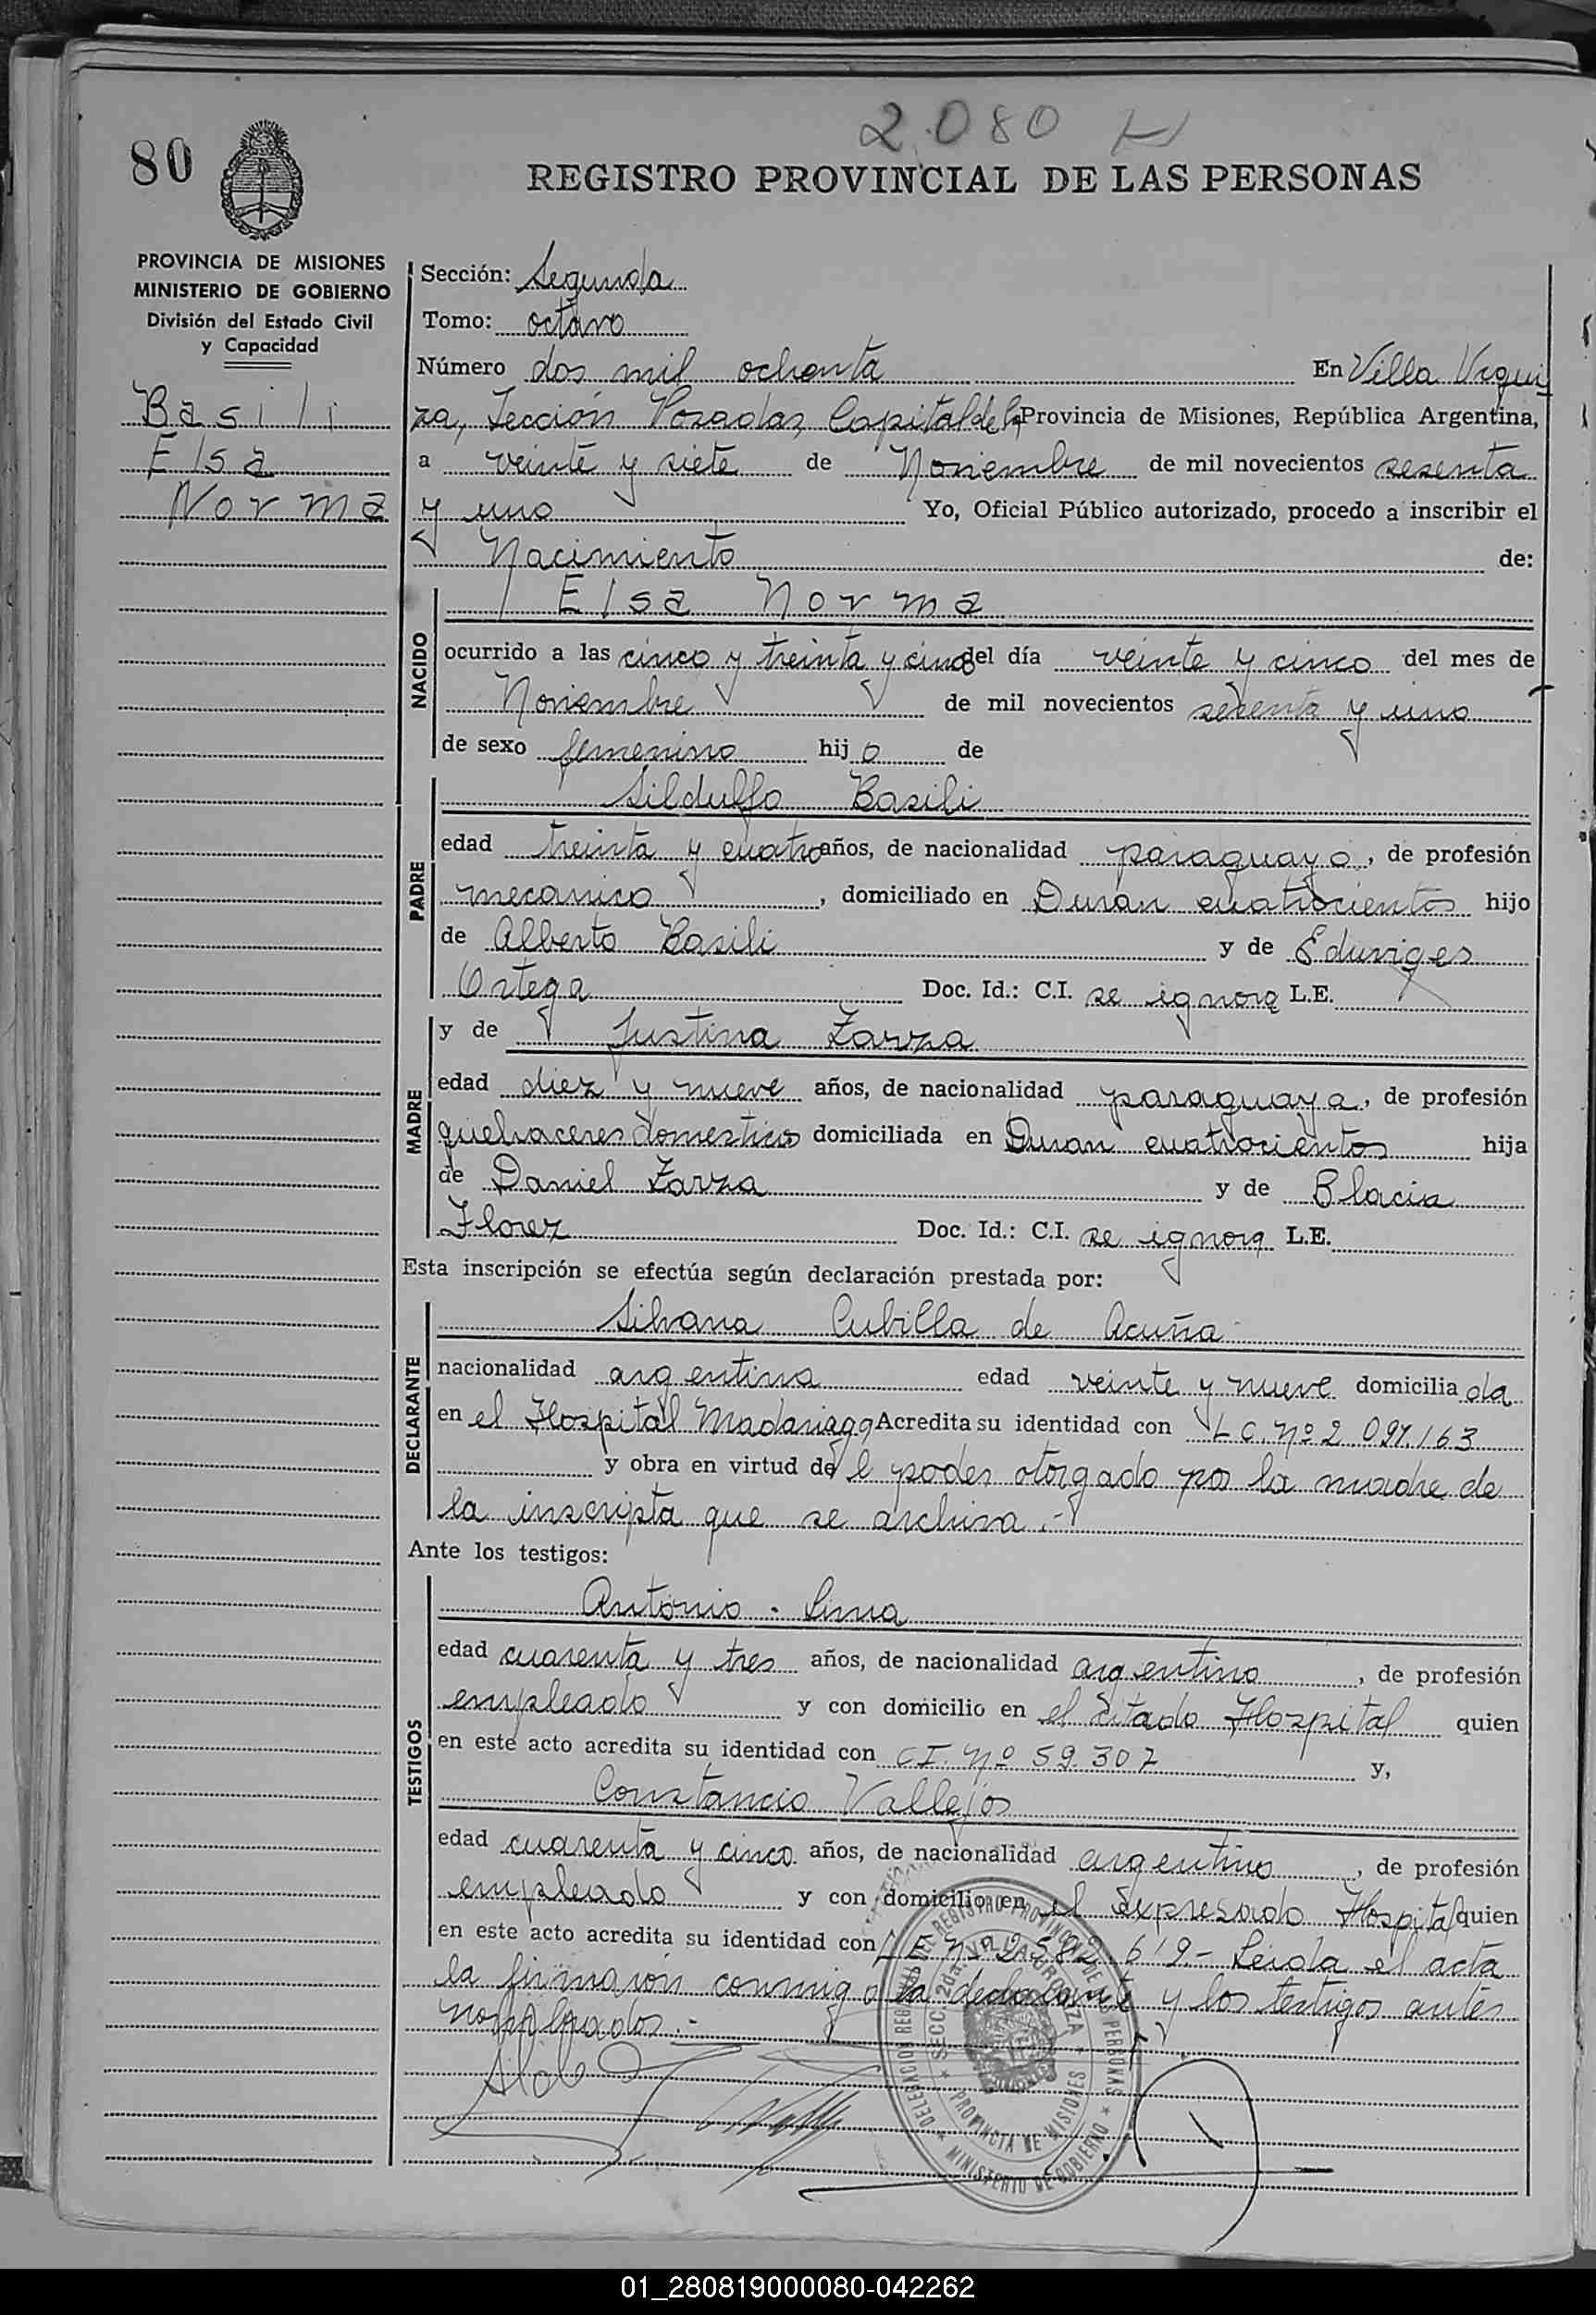 2.080
80
REGISTRO PROVINCIAL DE LAS PERSONAS
PROVINCIA DE MISIONES
MINISTERIO DE GOBIERNO
División del Estado Civil
y Capacidad
Basili
Elsa
Norma
Sección: Segunda
Tomo: octavo
Número dos mil ochenta En Villa Urqui
za, Sección Posadas, Capital de la Provincia de Misiones, República Argentina,
a veinte y siete de Noviembre de mil novecientos sesenta
y uno Yo, Oficial Público autorizado, procedo a inscribir el
Nacimiento de:
NACIDO
Elsa Norma
ocurrido a las cinco y treinta y cinco del día veinte y cinco del mes de
Noviembre de mil novecientos sesenta y uno
de sexo femenino hijo de
PADRE
Sildulfo Basili
edad treinta y cuatro años, de nacionalidad paraguayo, de profesión
mecanico, domiciliado en Durán cuatrocientos hijo
de Alberto Basili y de Eduviges
Ortega Doc. Id.: C.I. se ignora L.E.
MADRE
y de Justina Zarza
edad diez y nueve años, de nacionalidad paraguaya, de profesión
quehaceres domesticos domiciliada en Duran cuatrocientos hija
de Daniel Zarza y de Blacia
Florez Doc. Id.: C.I. se ignora L.E.
Esta inscripción se efectúa según declaración prestada por:
DECLARANTE
Silvana Cubilla de Acuña
nacionalidad argentina edad veinte y nueve domiciliada
en el Hospital Madariaga Acredita su identidad con L C. Nº 2 097.163
y obra en virtud del poder otorgado por la madre de
la inscripta que se archiva.-
Ante los testigos:
TESTIGOS
Antonio Lima
edad cuarenta y tres años, de nacionalidad argentino, de profesión
empleado y con domicilio en el citado Hospital quien
en este acto acredita su identidad con C I. Nº 59.307 y,
Constancio Vallejos
edad cuarenta y cinco años, de nacionalidad argentino, de profesión
empleado y con domicilio en el expresado Hospital quien
en este acto acredita su identidad con L E Nº 2582.619.- Leida el acta
la firmaron conmigo la declarante y los testigos antes
nombrados.-
DELEGACION REGIONAL DEL REGISTRO PROVINCIAL DE LAS PERSONAS * MINISTERIO DE GOBIERNO *
SECC. 2da. VILLA URQUIZA * PROVINCIA DE MISIONES *
01_280819000080-042262